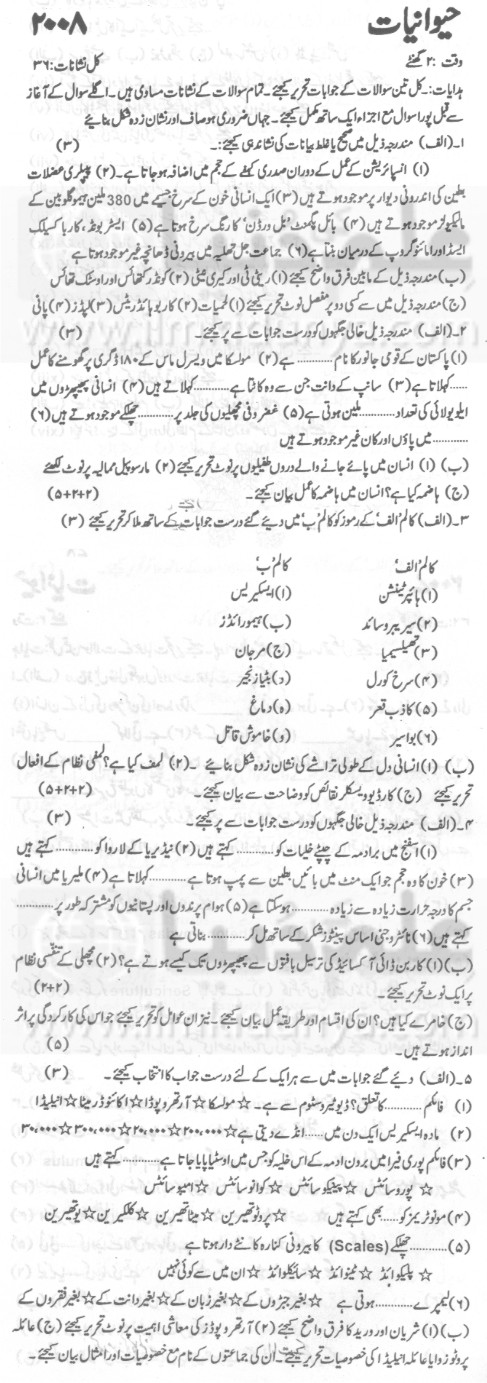 حیوانیات ۲۰۰۸
وقت: ۲ گھنٹے کل نشانات: ۳۶
ہدایات:۔ کل تین سوالات کے جوابات تحریر کیجئے۔ تمام سوالات کے نشانات مساوی ہیں۔ اگلے سوال کے آغاز
سے قبل پورا سوال مع اجزاء ایک ساتھ مکمل کیجئے۔ جہاں ضروری ہو صاف اور نشان زدہ شکل بنائیے
۱۔ (الف) مندرجہ ذیل میں صحیح یا غلط بیانات کی نشاندہی کیجئے:۔ (۳)
(۱) انسپائریشن کے عمل کے دوران صدری کہفے کے حجم میں اضافہ ہو جاتا ہے۔ (۲) پیپلری عضلات
بطین کی اندرونی دیوار پر موجود ہوتے ہیں (۳) ایک انسانی خون کے سرخ جسیمے میں 380 ملین ہیموگلوبین کے
مالیکیولز موجود ہوتے ہیں (۴) بائل پگمنٹ بلی ورڈن کا رنگ سرخ ہوتا ہے (۵) ایسٹر بونڈ، کاربا کسیلک
ایسڈ اور امائنو گروپ کے درمیان بنتا ہے (۶) جماعت جل تھلیہ میں بیرونی ڈھانچہ غیر موجود ہوتا ہے
(ب) مندرجہ ذیل کے مابین فرق واضح کیجئے (۱) ریٹی ٹی اور کیری نیٹی (۲) کونڈرکتھائس اور اوسٹک تھائس
(ج) مندرجہ ذیل میں سے کسی دو پر مفصل نوٹ تحریر کیجئے (۱) لحمیات (۲) کاربوہائڈریٹس (۳) لپڈز (۴) پانی
۲۔ (الف) مندرجہ ذیل خالی جگہوں کو درست جوابات سے پر کیجئے۔ (۳)
(۱) پاکستان کے قومی جانور کا نام ........... ہے (۲) مولسکا میں ویسرل ماس کے ۱۸۰ ڈگری پر گھومنے کا عمل
......کہلاتا ہے (۳) سانپ کے دانت جن سے وہ کاٹتا ہے ........... کہلاتے ہیں (۴) انسانی پھیپھڑوں میں
ایلویولائی کی تعداد ...........ملین ہوتی ہے (۵) غضروفی مچھلیوں کی جلد پر ........... چھلکے موجود ہوتے ہیں (۶)
........... میں پاؤں اور کان غیر موجود ہوتے ہیں
(ب) (۱) انسان میں پائے جانے والے دروں طفیلیوں پر نوٹ تحریر کیجئے (۲) مارسوپیل ممالیہ پر نوٹ لکھئے
(ج) ہاضمہ کیا ہے؟ انسان میں ہاضمہ کا عمل بیان کیجئے۔ (۵+۲+۲)
۳۔ (الف) کالم 'الف' کے رموز کو کالم 'ب' میں دیئے گئے درست جوابات کے ساتھ ملا کر تحریر کیجئے (۳)
کالم 'الف' کالم 'ب'
(۱) ہائپر ٹینشن (ا) ایسکیرس
(۲) سیریبروسائڈ (ب) ہیمورائڈز
(۳) تھیلیسیمیا (ج) مرجان
(۴) سرخ کورل (د)
(۵) کاذب قعر (ہ) دماغ
(۶) بواسیر (و) خاموش قاتل
(ب) (۱) انسانی دل کے طولی تراشے کی نشان زدہ شکل بنائیے۔ (۲) لمف کیا ہے؟ لمفی نظام کے افعال
تحریر کیجئے (ج) کارڈیوویسکلر نقائص کو وضاحت سے بیان کیجئے۔ (۵+۲+۲)
۴۔ (الف) مندرجہ ذیل خالی جگہوں کو درست جوابات سے پر کیجئے۔ (۳)
(۱) اسفنج میں برادمہ کے چپٹے خلیات کو ........... کہتے ہیں (۲) نیڈیریا کے لاروا کو ........... کہتے ہیں
(۳) خون کا وہ حجم جو ایک منٹ میں بائیں بطین سے پمپ ہوتا ہے ........... کہلاتا ہے (۴) ملیریا میں انسانی
جسم کا درجہ حرارت زیادہ سے زیادہ ........... ہوسکتا ہے (۵) ہوام پرندوں اور پستانیوں کو مشترکہ طور پر ......
کہتے ہیں (۶) نائٹروجنی اساس پینٹوز شکر کے ساتھ مل کر ........... بناتی ہے
(ب) (۱) کاربن ڈائی آکسائیڈ کی ترسیل بافتوں سے پھیپھڑوں تک کیسے ہوتی ہے؟ (۲) مچھلی کے تنفسی نظام
پر ایک نوٹ تحریر کیجئے۔ (۲+۲)
(ج) خامرے کیا ہیں؟ ان کی اقسام اور طریقہ عمل بیان کیجئے۔ نیز ان عوامل کو تحریر کیجئے جو ان کی کارکردگی پر اثر
انداز ہوتے ہیں۔ (۵)
۵۔ (الف) دیئے گئے جوابات میں سے ہر ایک کے لئے درست جواب کا انتخاب کیجئے۔ (۳)
(۱) فائلم ........... کا تعلق؟ ڈیوٹیروسٹوم سے ہے۔ ☆ مولسکا ☆ آرتھروپوڈا ☆ اکائنوڈرمیٹا ☆ اینلیڈا
(۲) مادہ ایسکیرس ایک دن میں ........... انڈے دیتی ہے ☆ ۲۰۰,۰۰۰ ☆ ۲۰,۰۰۰ ☆ ۳۰۰,۰۰۰ ☆ ۳۰,۰۰۰
(۳) فائلم پوری فیرا میں بردن ادمہ کے اس خلیہ کو جس میں اوسٹیا پایا جاتا ہے ........... کہتے ہیں
☆ پوروسائٹس ☆ پینیکوسائٹس ☆ کوانوسائٹس ☆ امیبوسائٹس
(۴) مونوٹریمز کو ........... بھی کہتے ہیں ☆ پروٹوتھیرین ☆ میٹاتھیرین ☆ کلکیرین ☆ یوتھیرین
(۵) ........... چھلکے (Scales) کا بیرونی کنارہ کانٹے دار ہوتا ہے
☆ پلیکوائڈ ☆ ٹینوائڈ ☆ سائیکلوائڈ ☆ ان میں سے کوئی نہیں
(۶) لیمپرے ........... ہوتی ہے ☆ بغیر جبڑوں کے ☆ بغیر زبان کے ☆ بغیر دانت کے ☆ بغیر فقروں کے
(ب) (۱) شریان اور ورید کا فرق واضح کیجئے (۲) آرتھروپوڈز کی معاشی اہمیت پر نوٹ تحریر کیجئے (ج) عائلہ
پروٹوزوا یا عائلہ اینلیڈا کی خصوصیات تحریر کیجئے۔ ان کی جماعتوں کے نام مع خصوصیات اور امثال بیان کیجئے۔